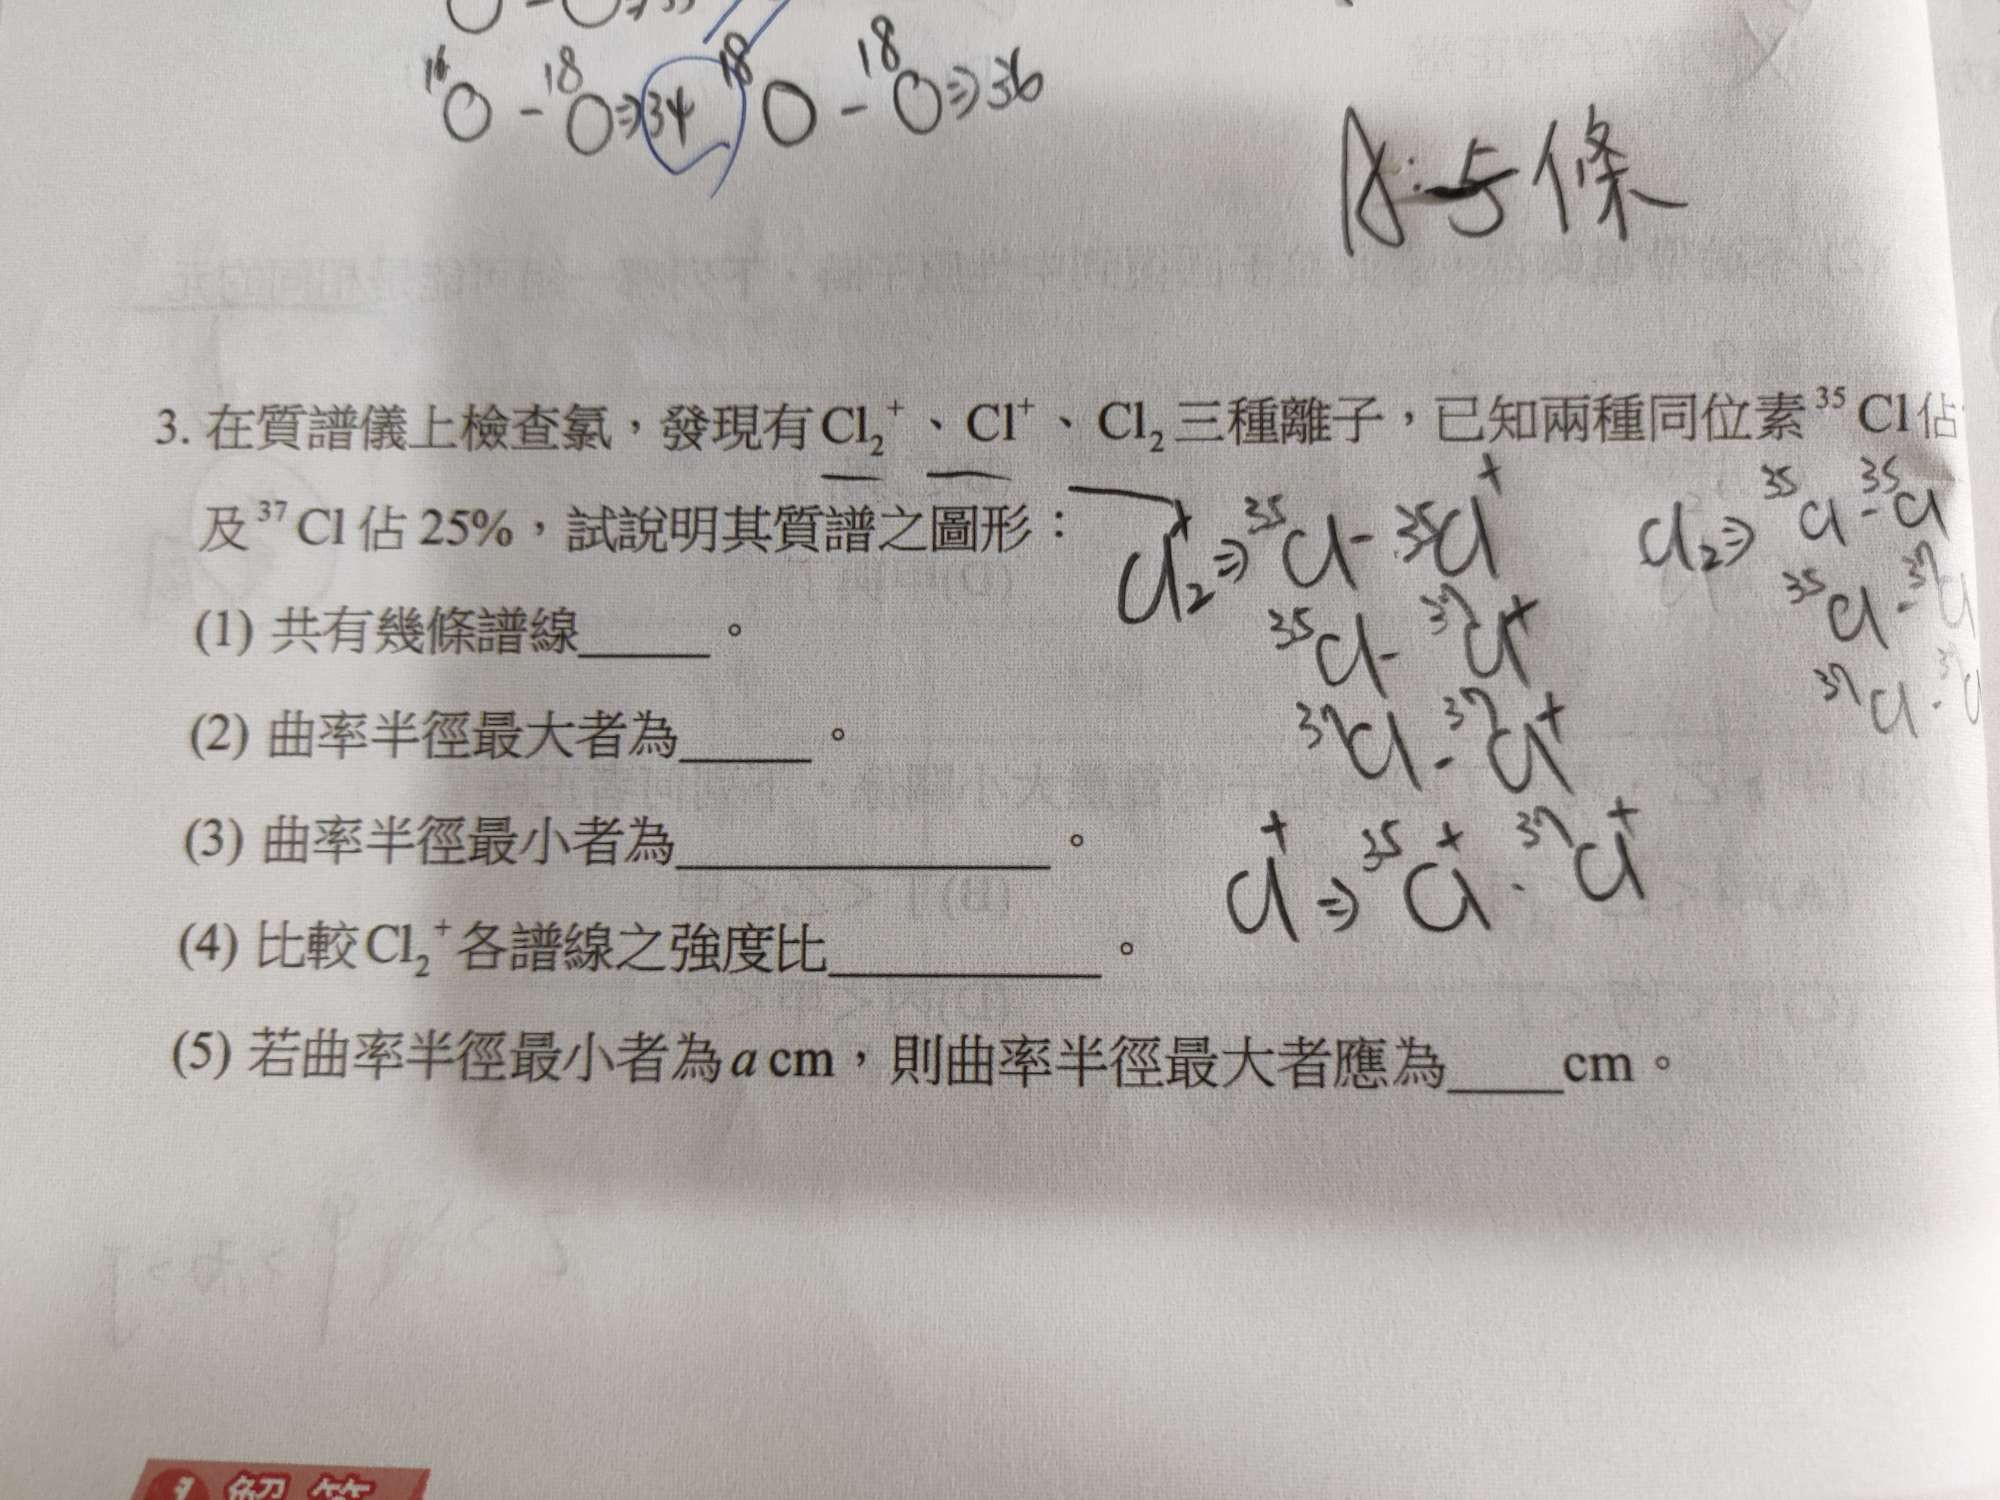 ¹⁶O - ¹⁸O ⇒ 34 ¹⁸O - ¹⁸O ⇒ 36
A: 5條
3. 在質譜儀上檢查氯，發現有Cl₂⁺、Cl⁺、Cl₂三種離子，已知兩種同位素³⁵Cl佔
及³⁷Cl佔25%，試說明其質譜之圖形：
Cl₂⁺ ⇒ ³⁵Cl - ³⁵Cl⁺
³⁵Cl - ³⁷Cl⁺
³⁷Cl - ³⁷Cl⁺
Cl⁺ ⇒ ³⁵Cl⁺ . ³⁷Cl⁺
Cl₂ ⇒ ³⁵Cl - ³⁵Cl
³⁵Cl - ³⁷Cl
(1) 共有幾條譜線_____。
(2) 曲率半徑最大者為_____。
(3) 曲率半徑最小者為______________。
(4) 比較Cl₂⁺各譜線之強度比__________。
(5) 若曲率半徑最小者為a cm，則曲率半徑最大者應為____cm。
解答